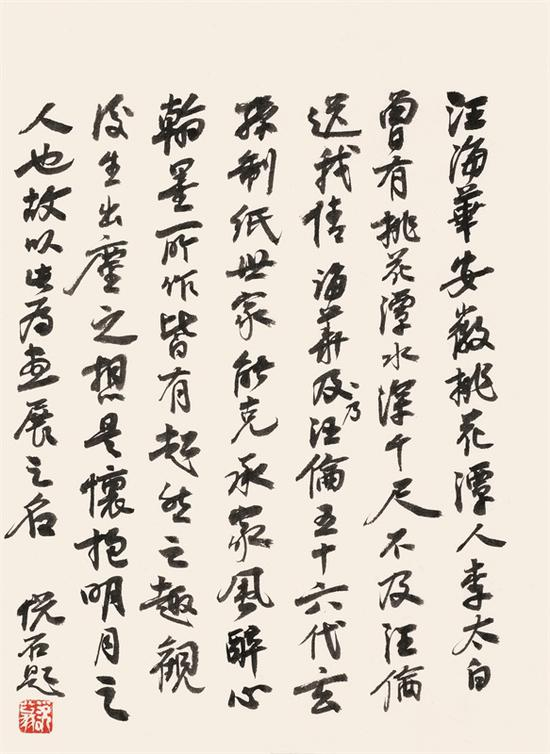 汪海華安徽桃花潭人李太白
曾有桃花潭水深千尺不及汪倫
送我情海華及乃汪倫五十六代玄
孫制紙世家能克承家風醉心
翰墨所作皆有超然之趣觀
後生出塵之想是懷抱明月之
人也故以此為畫展之名
倪石題